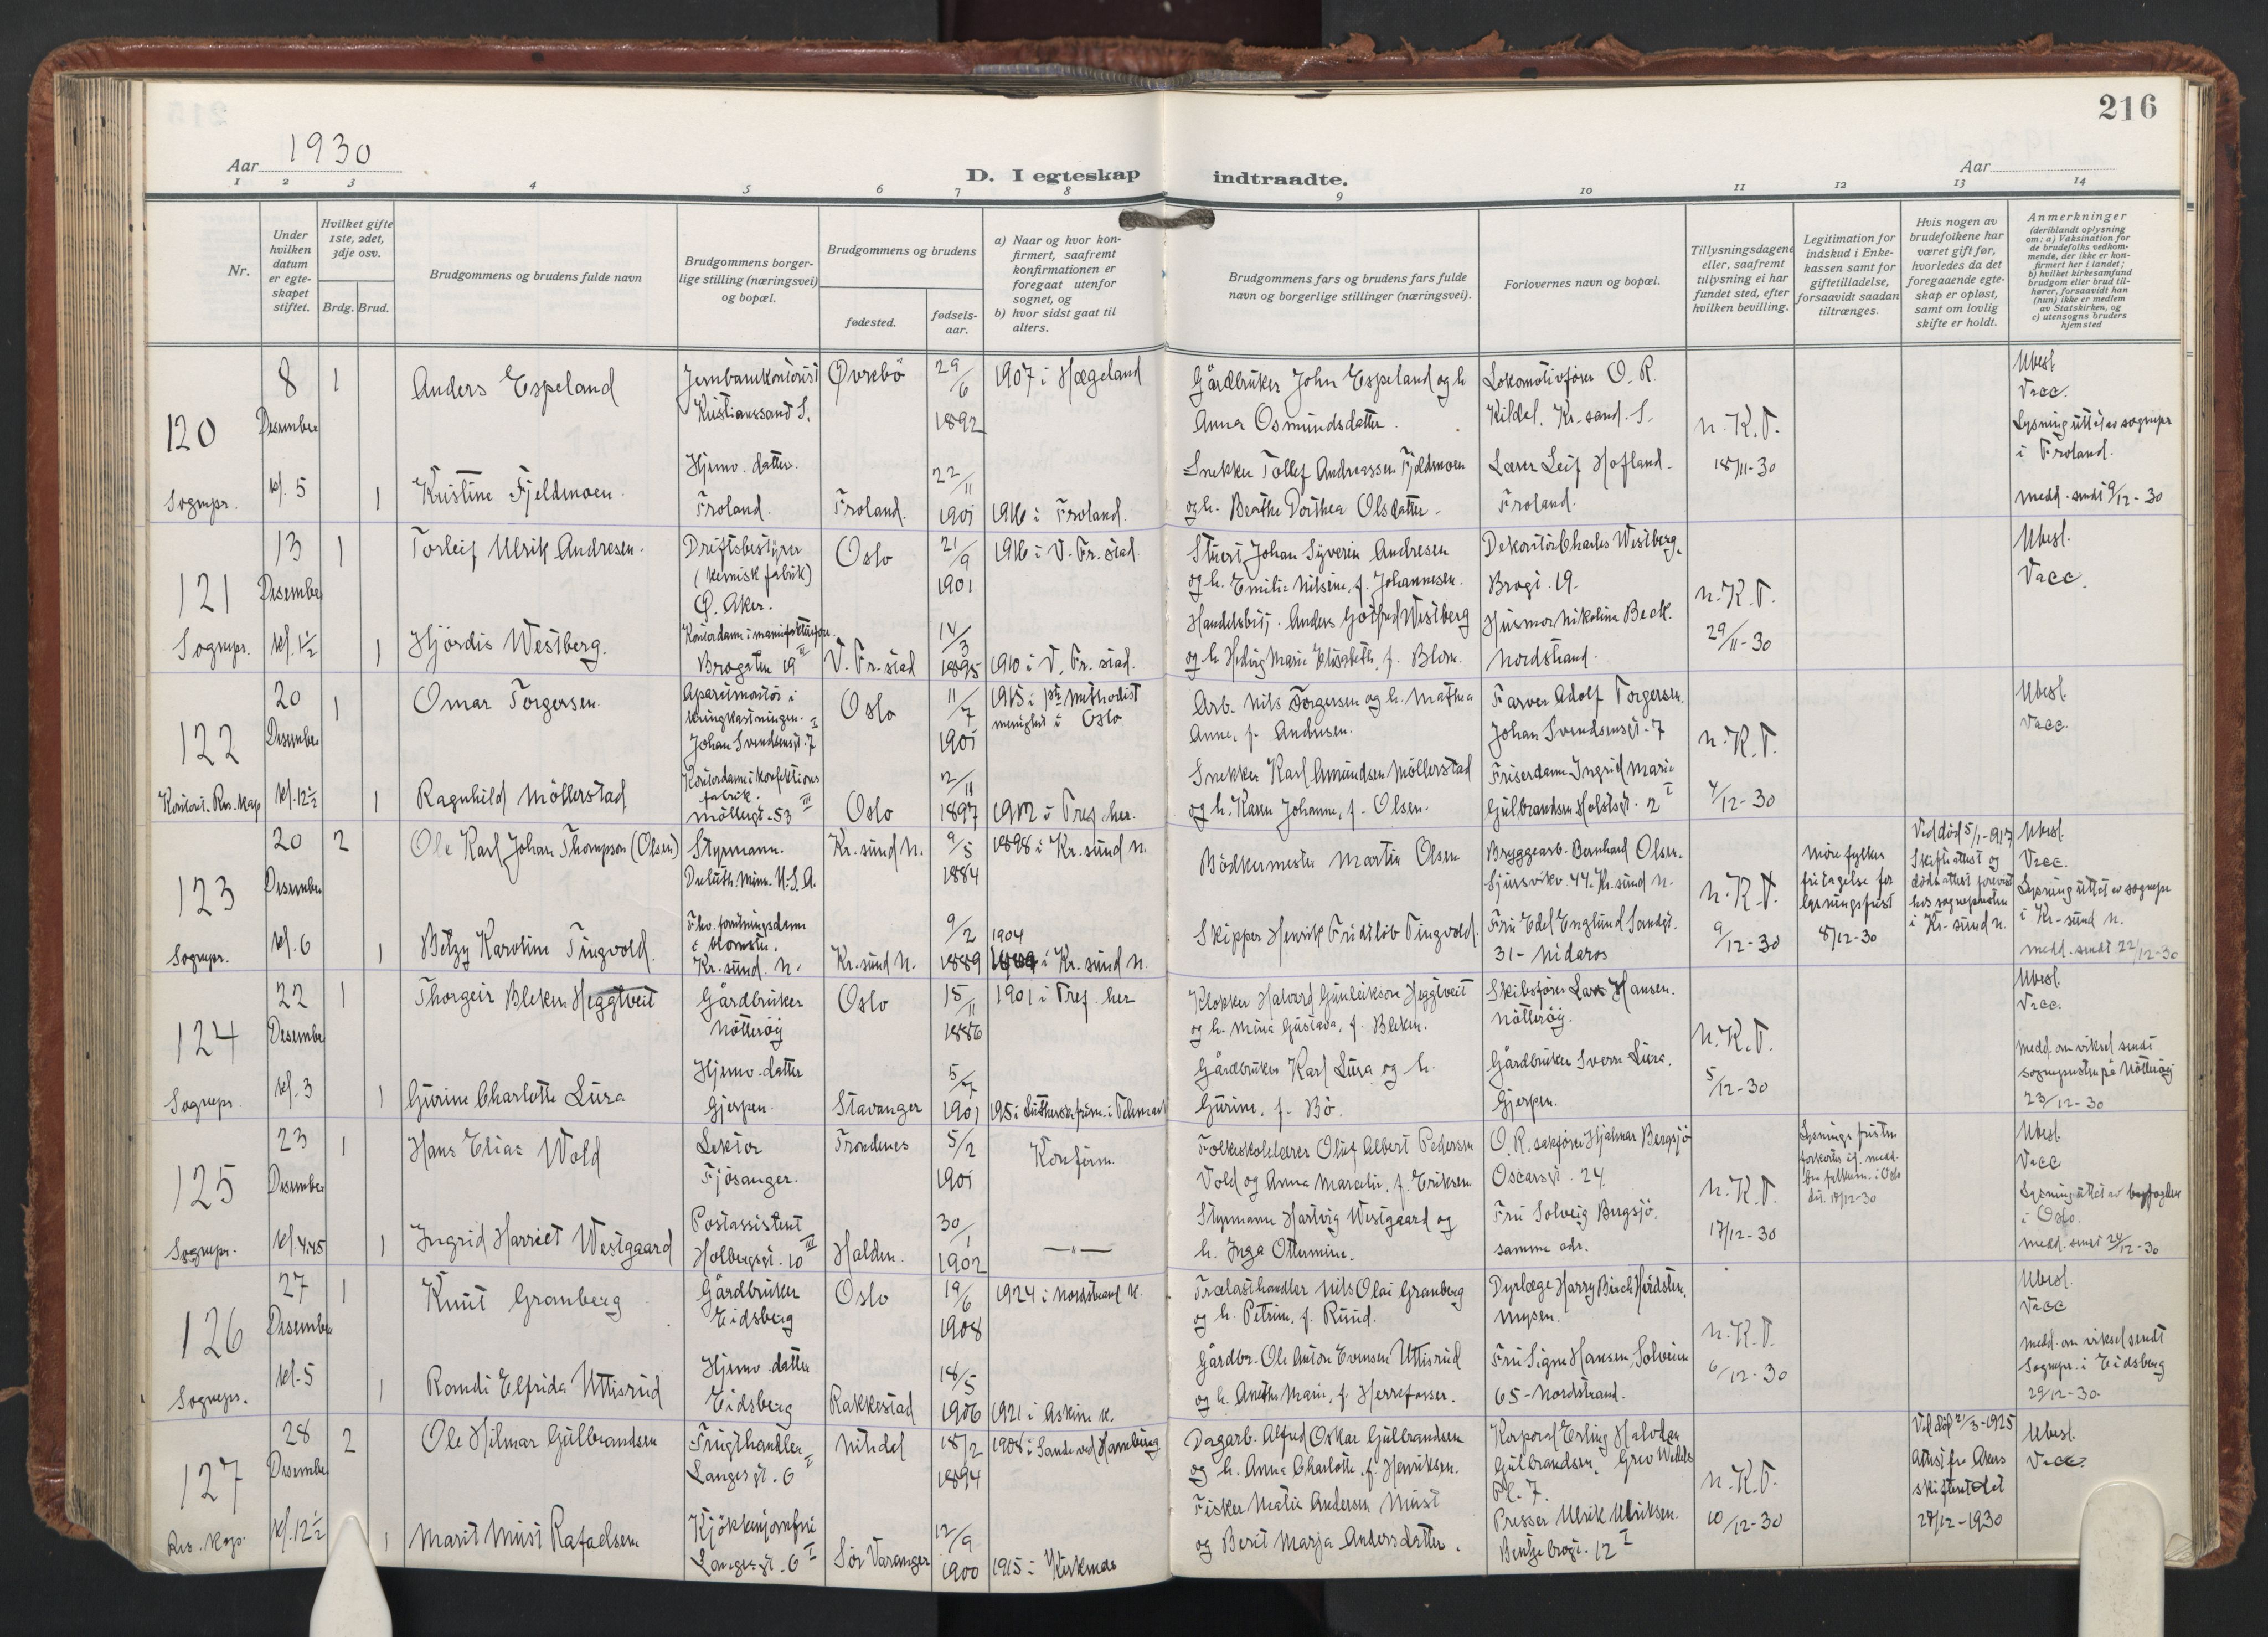 216
Aar 1930
D. I egteskap indtraadte.
Aar
1 2 3 4 5 6 7 8 9 10 11 12 13 14
Nr.
Under hvilken datum er egteskapet stiftet.
Hvilket gifte 1ste, 2det, 3dje osv.
Brdg. Brud.
Brudgommens og brudens fulde navn
Brudgommens borgerlige stilling (næringsvei) og bopæl.
Brudgommens og brudens
fødested.
fødselsaar.
a) Naar og hvor konfirmert, saafremt konfirmationen er foregaat utenfor sognet, og
b) hvor sidst gaat til alters.
Brudgommens fars og brudens fars fulde navn og borgerlige stillinger (næringsvei).
Forlovernes navn og bopæl.
Tillysningsdagene eller, saafremt tillysning ei har fundet sted, efter hvilken bevilling.
Legitimation for indskud i Enkekassen samt for giftetilladelse, forsaavidt saadan tiltrænges.
Hvis nogen av brudefolkene har været gift før, hvorledes da det foregaaende egteskap er opløst, samt om lovlig skifte er holdt.
Anmerkninger (deriblandt oplysning om: a) Vaksination for de brudefolks vedkommende, der ikke er konfirmert her i landet; b) hvilket kirkesamfund brudgom eller brud tilhører, forsaavidt han (hun) ikke er medlem av Statskirken, og c) utensogns bruders hjemsted
120
Sognepr.
8 Desember kl. 5
1
Anders Espeland
Jernbanekontorist Kristianssand S.
Øvrebö
29/6 1892
1907 i Hægeland
Gårdbruker John Espeland og h. Anna Osmundsdatter.
Lokomotivfører O. R. Kildal. Kr.sand. S.
n.K.T. 18/11-30
Ubesl. Vacc.
Lysning uttat av sognepr i Froland.
medd. sendt 9/12-30
1
Kristine Fjeldmoen.
Hjemv. datter. Froland.
Froland.
22/11 1901
1916 i Froland.
Snekker Tollef Andreassen Fjeldmoen og h. Beathe Dorthea Olsdatter.
Lærer Leif Hofland. Froland.
121
Sognepr.
13 Desember kl. 1½
1
Torleif Ulrik Andresen.
Driftsbestyrer (kemisk fabrik) Ö. Aker.
Oslo
21/9 1901
1916 i V. Fr.stad.
Stuert Johan Syverin Andresen og h. Emilie Nilsine, f. Johannesen.
Dekoratör Charles Westberg. Brogt. 19.
n.K.T. 29/11-30
Ubesl. Vacc.
1
Hjördis Westberg.
Brogaten 19 II
V. Fr.stad
14/3 1895
1910 i V. Fr.stad.
Handelsbetj. Anders Gotfred Westberg og h. Hedvig Marie Elisabeth, f. Blom.
Husmor Nikoline Beck. Nordstrand.
122
20 Desember kl. 12½
1
Omar Torgersen.
Aparatmontör i kringkastningen. Johan Svendsensgt. 7 I
Oslo
11/7 1901
1915 i 1ste Methodist menighet i Oslo
Arb. Nils Torgersen og h. Mathea Anne, f. Andresen.
Farver Adolf Torgersen. Johan Svendsensgt. 7
n.K.T. 4/12-30
Ubesl. Vacc.
1
Ragnhild Möllerstad
Kontordame i konfektionsfabrik. Möllergt. 53 III
Oslo
2/11 1897
1912 i Tref. her.
Snekker Karl Amundsen Möllerstad og h. Karen Johanne, f. Olsen.
Friserdame Ingrid Marie Gulbrandsen Holstsgt. 2 I
123
Sognepr.
20 Desember kl. 6
2
Ole Karl Johan Thompson (Olsen)
Styrmann. Duluth. Minn. U.S.A.
Kr.sund N.
9/5 1884
1898 i Kr.sund N.
Bödkermester Martin Olsen
Bryggearb. Bernhard Olsen. 44. Kr.sund N.
n.K.T. 9/12-30
Möre fylkes fritagelse for lysningsfrist 8/12-30
Ved död 5/1-1917 Skifteattest og dödsattest forevist hos sognepresten i Kr.sund N.
Ubesl. Vacc.
Lysning uttat av sognepr i Kr.sund N.
medd. sendt 22/12-30
1
Betzy Karoline Tingvold.
Fhv. forretningsdame i blomsterf. Kr.sund. N.
Kr.sund N.
9/2 1889
1904 i Kr.sund N.
Skipper Henrik Fridtlöb Tingvold.
Fru Edel Englund Sandgt. 31 - Nidaros
124
Sognepr.
22 Desember kl. 3
1
Thorgeir Bleken Heggtveit
Gårdbruker Nötteröy
Oslo
15/11 1886
1901 i Tref. her
Klokker Halvord Gunleikson Heggtveit og h. Mina Gustava, f. Bleken.
Skibsförer Lars Hansen. Nötteröy.
n.K.T. 5/12-30
Ubesl. Vacc.
Medd. om vielsen sendt sognepresten på Nötteröy 23/12-30
1
Gurine Charlotte Lura
Hjemv. datter Gjerpen.
Stavanger
5/7 1901
Gårdbruker Karl Lura og h. Gurine, f. Bö.
Gårdbruker Sverre Lura. Gjerpen.
125
Sognepr.
23 Desember kl. 4.45
1
Hans Elias Vold
Lektor Fjösanger.
Trondenes
5/2 1901
Konfirm.
Folkeskolelærer Oluf Albert Pedersen Vold og Anna Marcelie, f. Eriksen
O.R.sakförer Hjalmar Bergsjö Oscarsgt. 24.
n.K.T. 17/12-30
Ubesl. Vacc
Lysning uttat av byfogden i Oslo.
medd. sendt 24/12-30
1
Ingrid Harriet Westgaard
Postassistent Holbergsgt. 10 III
Halden.
30/1 1902
—"—
Styrmann Hartvig Westgaard og h. Inga Ottermine.
Fru Solveig Bergsjö. samme adr.
126
Sognepr.
27 Desember kl. 5
1
Knut Granberg
Gårdbruker Eidsberg
Oslo
19/6 1908
1924 i Nordstrand k.
Trælasthandler Nils Olai Granberg og h. Petrine, f. Ruud.
Mysen.
n.K.T. 6/12-30
Ubesl. Vacc
Medd. om vielsen sendt Sognepr. i Eidsberg 29/12-30
1
Randi Elfrida Uttisrud
Hjemv. datter Eidsberg
Rakkestad
18/5 1906
1921 i Askim k.
Gårdbr. Ole Anton Evensen Uttisrud og h. Anethe Marie, f. Herrefosser.
Fru Signe Hansen, Solveien 65 - Nordstrand.
127
Res. kap.
28 Desember kl. 12½
2
Ole Hilmar Gulbrandsen
Frugthandler Langesgt. 6 II
18/2 1894
Dagarb. Alfred Oskar Gulbrandsen og h. Anna Charlotte, f. Henriksen.
Korporal Erling Halvdan Gulbrandsen. Grev Wedels Pl. 7.
n.K.T. 10/12-30
Ved död 2/3-1925 Attest fra Akers skifterett 27/12-1930
Ubesl. Vacc.
1
Marit Must Rafaelsen
Kjökkenjomfru Langesgt. 6 I
Sör Varanger
12/9 1900
1915 i Kirkenes
Fisker Matis Andersen Must og Berit Marja Andersdatter.
Presser Ulrik Ulriksen. Bentsebrogt. 12 I